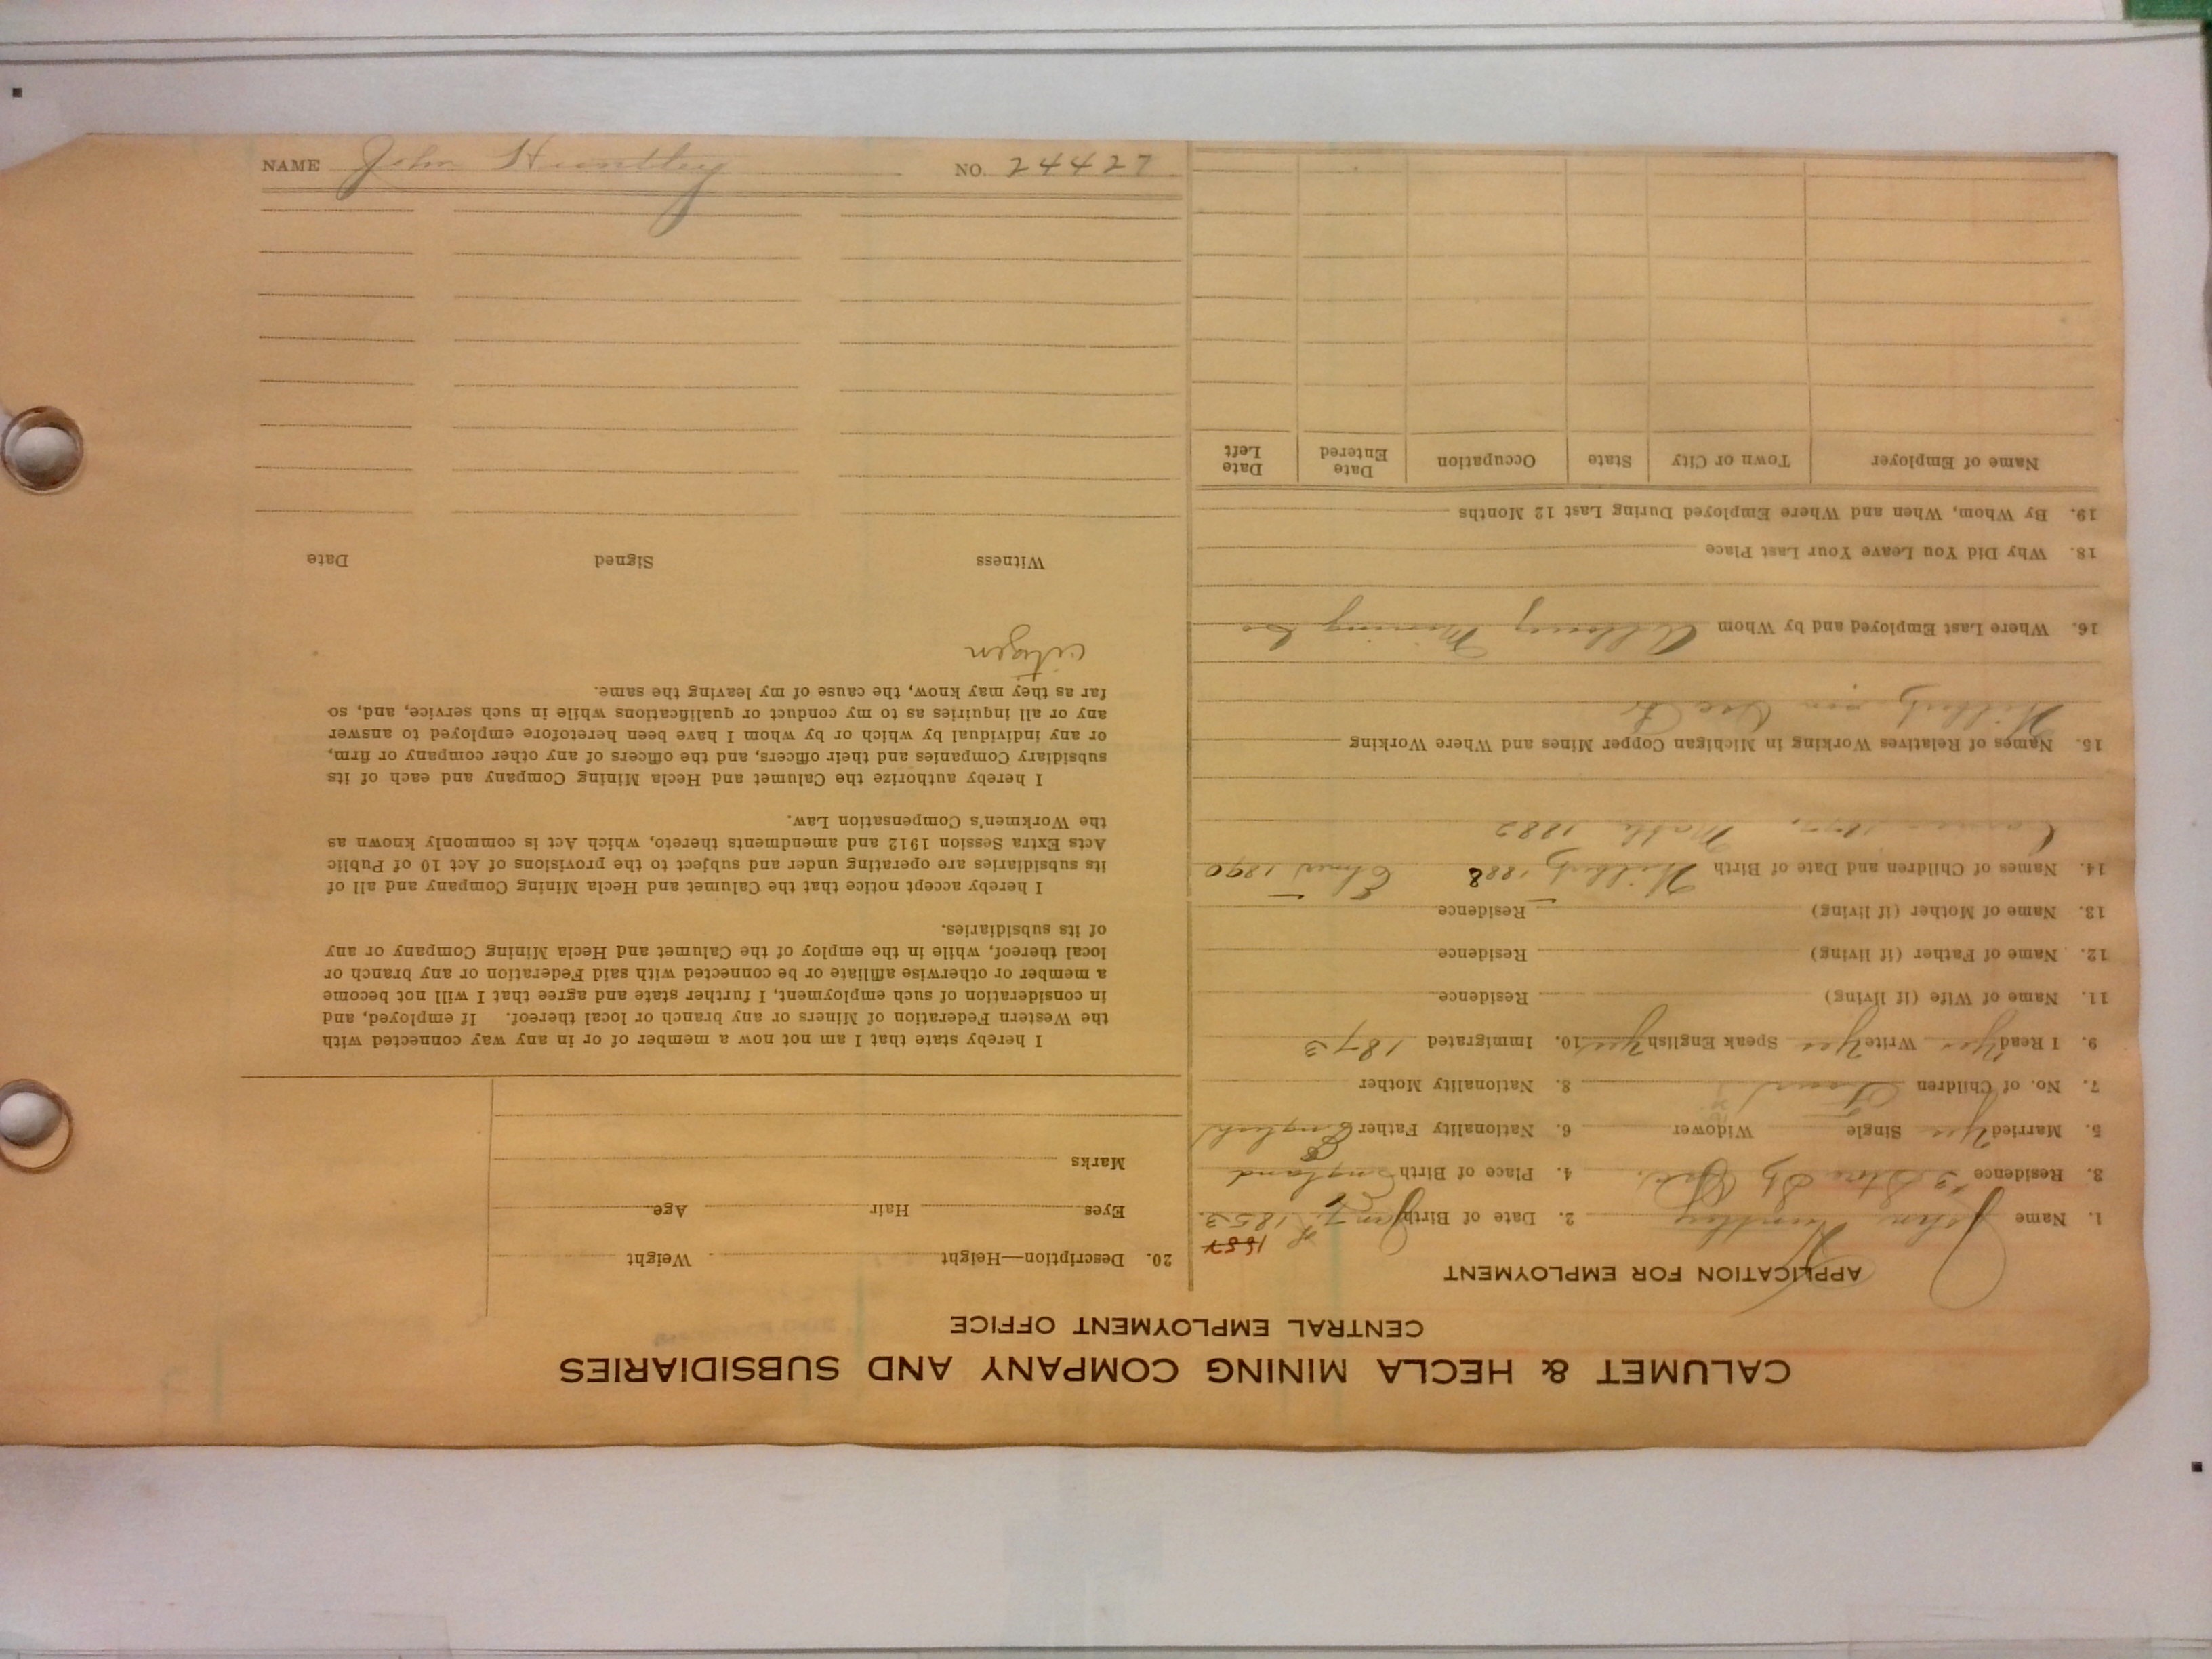 CALUMET & HECLA MINING COMPANY AND SUBSIDIARIES
CENTRAL EMPLOYMENT OFFICE
APPLICATION FOR EMPLOYMENT
1857
1. Name John Huntley 2. Date of Birth Jan 7. 1853.
3. Residence #3 Stone St 4. Place of Birth England
5. Married Yes Single Widower 6. Nationality Father English
7. No. of Children Four 8. Nationality Mother
9. I Read Yes Write Yes Speak English Yes 10. Immigrated 1873
11. Name of Wife (if living) Residence
12. Name of Father (if living) Residence
13. Name of Mother (if living) Residence
14. Names of Children and Date of Birth 1888 1890
1882
15. Names of Relatives Working in Michigan Copper Mines and Where Working
16. Where Last Employed and by Whom Mining Co
18. Why Did You Leave Your Last Place
19. By Whom, When and Where Employed During Last 12 Months
Name of Employer Town or City State Occupation Date Entered Date Left
20. Description—Height Weight
Eyes Hair Age
Marks
I hereby state that I am not now a member of or in any way connected with
the Western Federation of Miners or any branch or local thereof. If employed, and
in consideration of such employment, I further state and agree that I will not become
a member or otherwise affiliate or be connected with said Federation or any branch or
local thereof, while in the employ of the Calumet and Hecla Mining Company or any
of its subsidiaries.
I hereby accept notice that the Calumet and Hecla Mining Company and all of
its subsidiaries are operating under and subject to the provisions of Act 10 of Public
Acts Extra Session 1912 and amendments thereto, which Act is commonly known as
the Workmen's Compensation Law.
I hereby authorize the Calumet and Hecla Mining Company and each of its
subsidiary Companies and their officers, and the officers of any other company or firm,
or any individual by which or by whom I have been heretofore employed to answer
any or all inquiries as to my conduct or qualifications while in such service, and, so
far as they may know, the cause of my leaving the same.
citizen
Witness Signed Date
NAME John Huntley NO. 24427